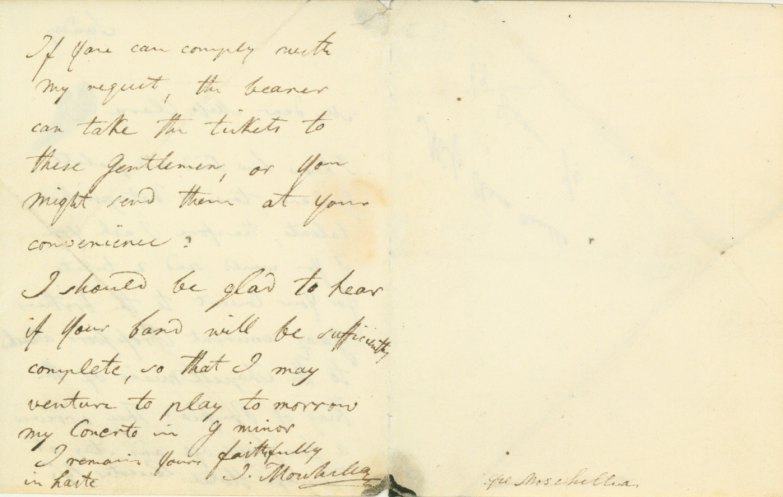 If you can comply with
my request, the bearer
can take the tickets to
these Gentlemen, or you
might send them at your
convenience?
I should be glad to hear
if your band will be sufficiently
complete, so that I may
venture to play to morrow
my Concerto in G minor
I remain yours faithfully
in haste
J. Moscheles
Moschelles